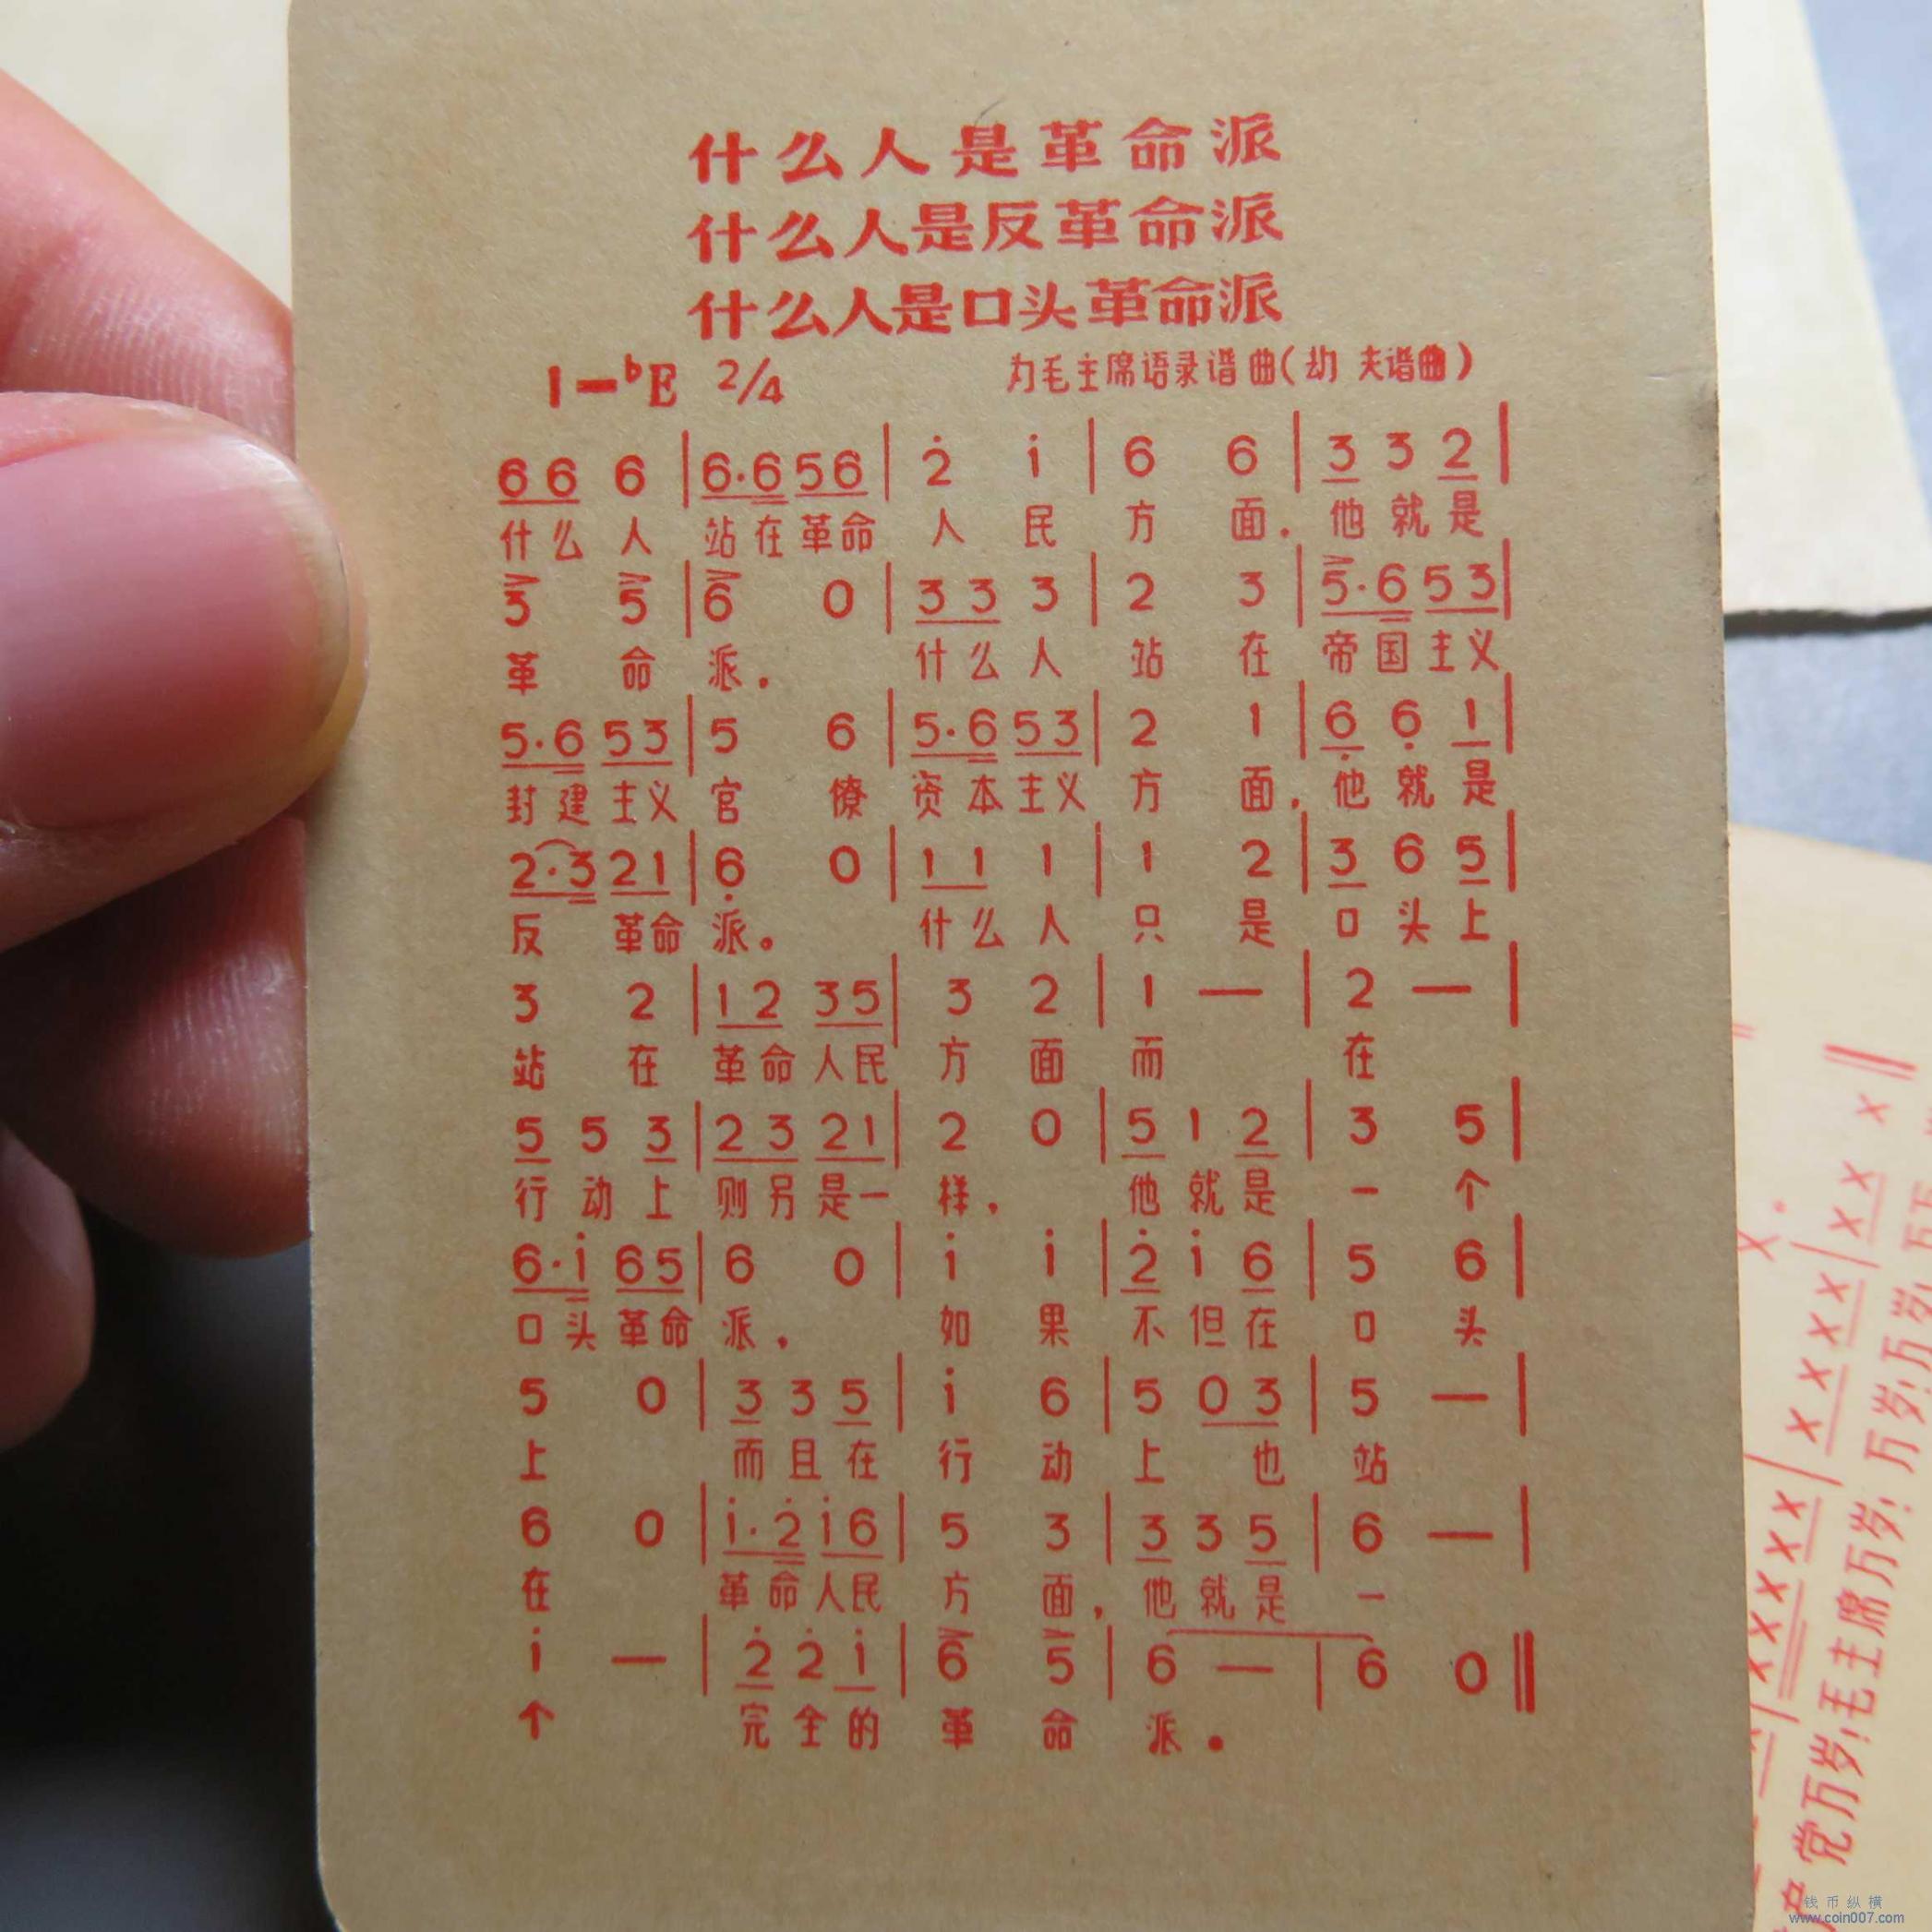 什么人是革命派
什么人是反革命派
什么人是口头革命派
1=♭E 2/4 为毛主席语录谱曲(劫 夫谱曲)
6 6 6 | 6·6 5 6 | 2̇ 1̇ | 6 6 | 3 3 2 |
什么 人 站在革命 人 民 方 面. 他就是
3 5 | 6 0 | 3 3 3 | 2 3 | 5·6 5 3 |
革 命 派. 什么人 站 在 帝国主义
5·6 5 3 | 5 6 | 5·6 5 3 | 2 1 | 6̣ 6̣ 1 |
封建主义 官 僚 资本主义 方 面,他就是
2·3 2 1 | 6̣ 0 | 1 1 1 | 1 2 | 3 6 5 |
反 革命 派。 什么人 只 是 口头上
3 2 | 1 2 3 5 | 3 2 | 1 — | 2 — |
站 在 革命人民 方 面 而 在
5 5 3 | 2 3 2 1 | 2 0 | 5 1 2 | 3 5 |
行动上 则另是一 样, 他就是 一 个
6·1̇ 6 5 | 6 0 | 1̇ 1̇ | 2̇ 1̇ 6 | 5 6 |
口头革命 派, 如 果 不但在 口 头
5 0 | 3 3 5 | 1̇ 6 | 5 0 3 | 5 — |
上 而且在 行 动 上 也 站
6 0 | 1̇·2̇ 1̇ 6 | 5 3 | 3 3 5 | 6 — |
在 革命人民 方 面,他就是 一
1̇ — | 2̇ 2̇ 1̇ | 6 5 | 6 — | 6 0 ‖
个 完全的 革 命 派.
党万岁!毛主席万岁!万岁!万岁!
钱币纵横
www.coin007.com